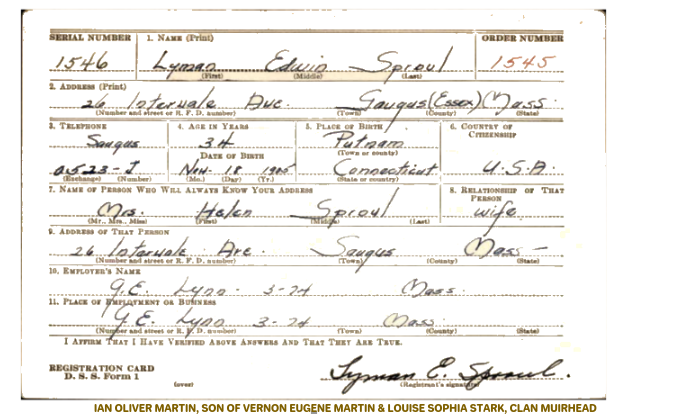 SERIAL NUMBER 1. NAME (Print) ORDER NUMBER
1546 Lyman Edwin Sproul 1545
(First) (Middle) (Last)
2. ADDRESS (Print)
26 Intervale Ave. Saugus (Essex) Mass.
(Number and street or R. F. D. number) (Town) (County) (State)
3. TELEPHONE 4. AGE IN YEARS 5. PLACE OF BIRTH 6. COUNTRY OF CITIZENSHIP
Saugus 34 Putnam
DATE OF BIRTH (Town or county)
0523-J Nov. 18 1905 Connecticut U.S.A.
(Exchange) (Number) (Mo.) (Day) (Yr.) (State or country)
7. NAME OF PERSON WHO WILL ALWAYS KNOW YOUR ADDRESS 8. RELATIONSHIP OF THAT PERSON
Mrs. Helen Sproul wife
(Mr., Mrs., Miss) (First) (Middle) (Last)
9. ADDRESS OF THAT PERSON
26 Intervale Ave. Saugus Mass
(Number and street or R. F. D. number) (Town) (County) (State)
10. EMPLOYER'S NAME
G.E. Lynn 3-74 Mass.
11. PLACE OF EMPLOYMENT OR BUSINESS
G.E. Lynn 3-74 Mass.
(Number and street or R. F. D. number) (Town) (County) (State)
I AFFIRM THAT I HAVE VERIFIED ABOVE ANSWERS AND THAT THEY ARE TRUE.
REGISTRATION CARD
D. S. S. Form 1 Lyman E. Sproul.
(over) (Registrant's signature)
IAN OLIVER MARTIN, SON OF VERNON EUGENE MARTIN & LOUISE SOPHIA STARK, CLAN MUIRHEAD